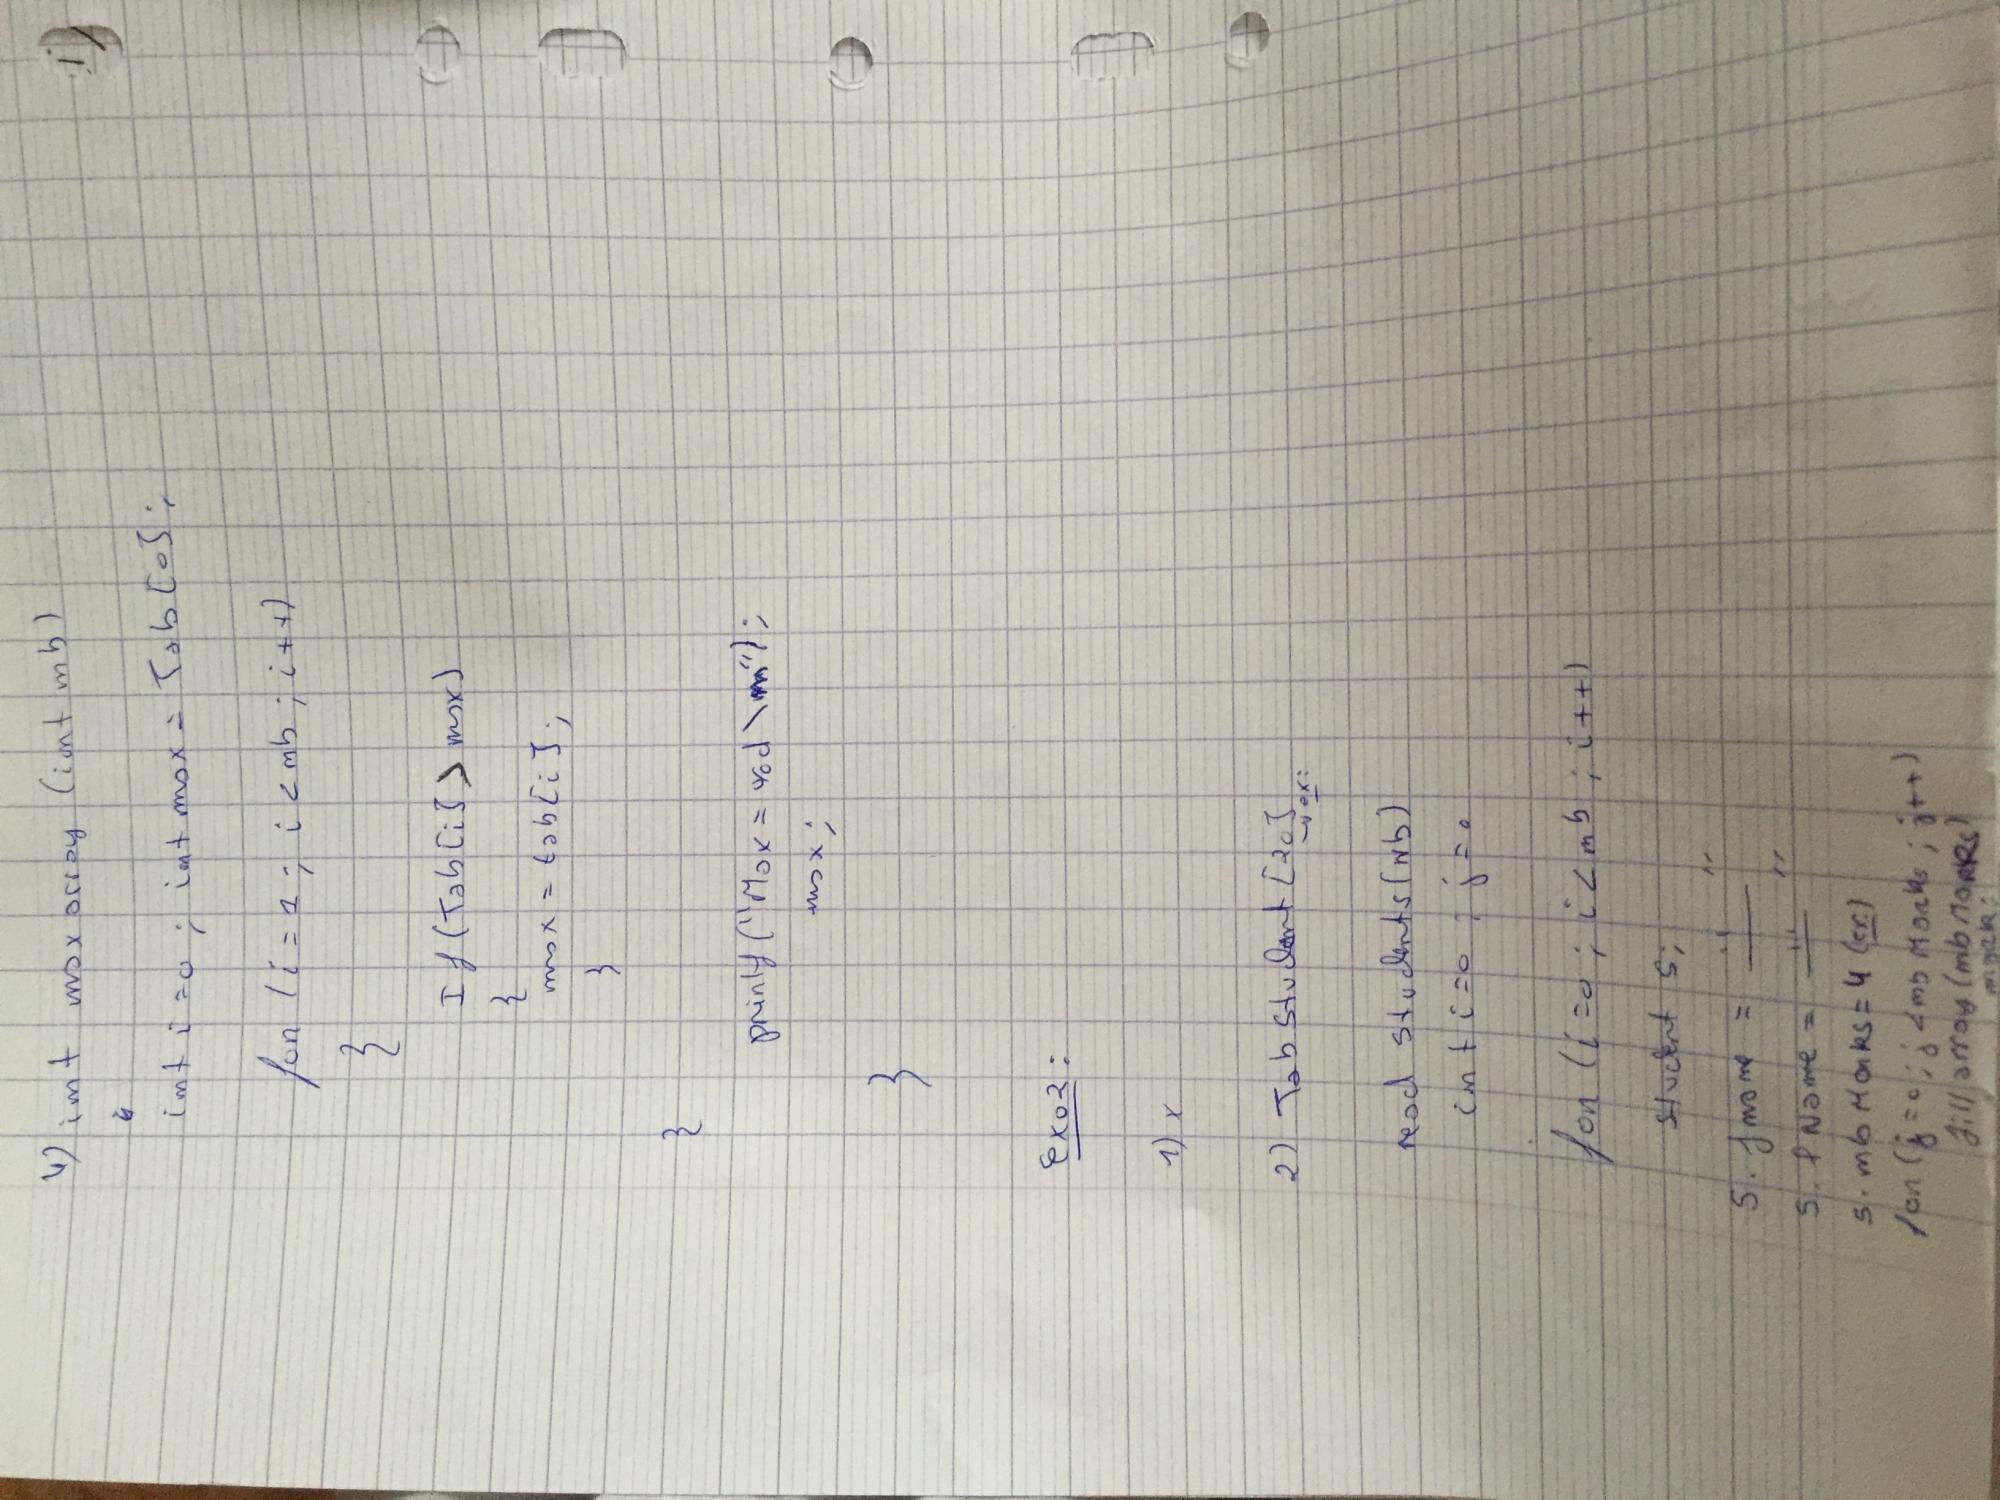 4) int max array (int nb)
{
int i=0 ; int max = Tab[0];
for (i=1 ; i<nb ; i++)
{
If (Tab[i] > max)
{
max = tab[i];
}
}
printf("Max = %d \n");
max ;
}
exo2:
1) x
2) Tab Student [20]
→ ex:
read students (Nb)
int i=0 ; j=0
for (i=0 ; i<nb ; i++)
student s;
s. fname = "___"
s. fName = "___"
s. nb Marks = 4 (ex)
for (j=0 ; j<nb Marks ; j++)
fill array (nb Marks)
mark;